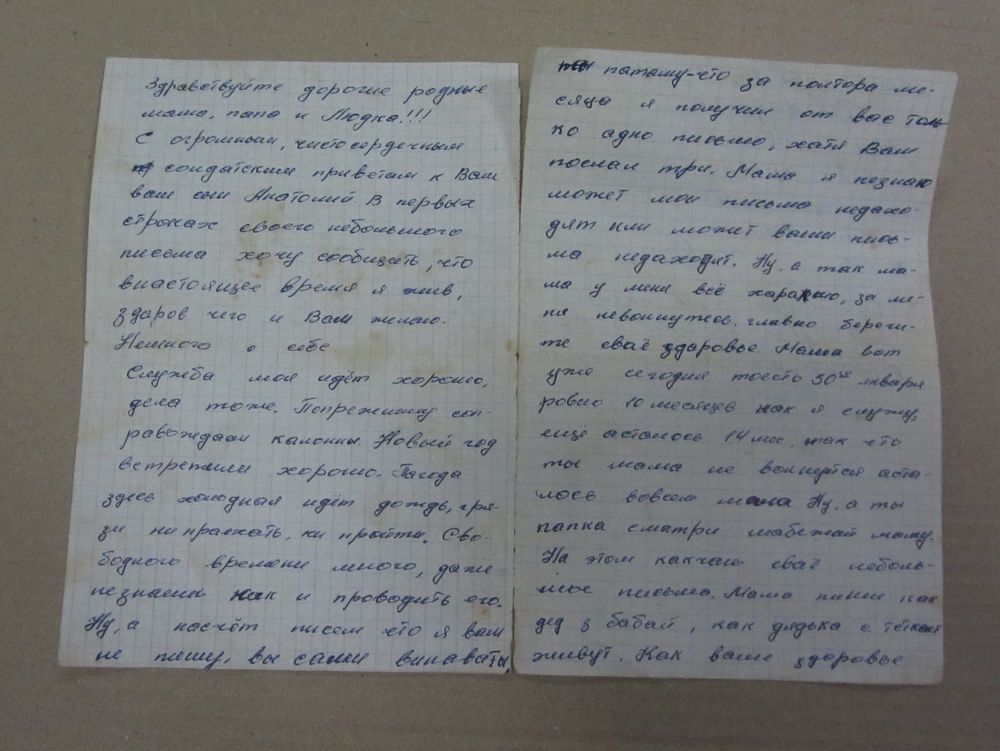 Здравствуйте дорогие родные
мама, папа и Людка!!!
С огромным, чистосердечным
солдатским приветам к Вам
ваш сын Анатолий В первых
строках своего небольшого
письма хочу сообщить, что
внастоящее время я жив,
здаров чего и Вам желаю.
Немного о себе
Служба моя идёт хорошо,
дела тоже. Попрежниму соп-
равождаем калонны. Новый год
встретили хорошо. Пагода
здесь холодная идёт дождь, гря-
зи ни праехать, ни пройти. Сво-
бодного времени много, даже
незнаешь как и проводить его.
Ну, а насчёт писем что я вам
не пишу, вы сами винаваты,
патаму-что за полтора ме-
сяца я получил от вас толь
ко адно письмо, хатя Вам
послал три. Мама я незнаю
может мои письма недахо-
дят или может ваши пись-
ма недаходят. Ну, а так ма-
ма у меня всё харашо, за ме-
ня неволнуйтесь, главно береги-
те сваё здаровье. Мама вот
уже сегодня тоесть 30ое января
ровно 10 месяцев как я служу,
ещё асталось 14 мес, так что
ты мама не волнуйся аста-
лось вовсем мала Ну, а ты
папка сматри
На этом какчаю сваё неболь-
шое письмо. Мама пиши как
дед з бабай, как дядька с тёткай
живут. Как ваше здоровье